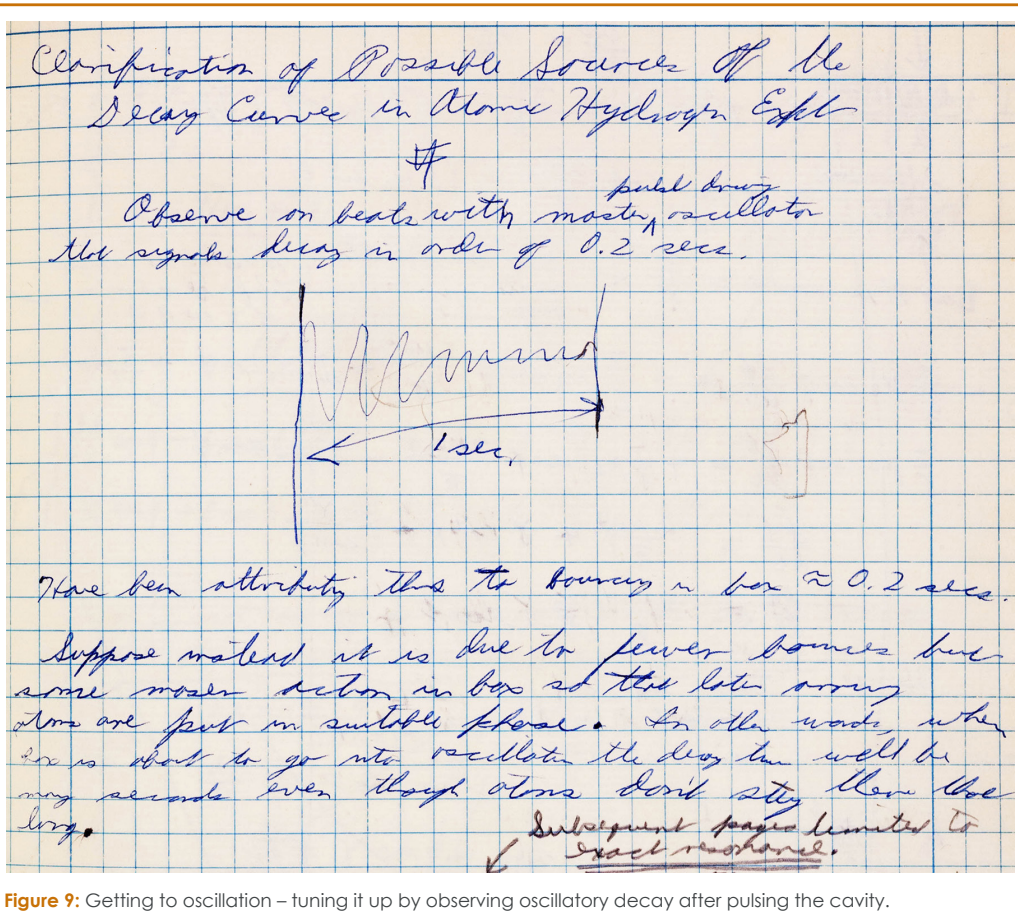 Clarification of Possible Sources Of the
Decay Curve in Atomic Hydrogen Expt
pulsed driving
Observe on beats with master ^ oscillator
that signals decay in order of 0.2 secs.
1 sec.
Have been attributing this to bouncing in box ≈ 0.2 secs.
Suppose instead it is due to fewer bounces but
some maser action in box so that later arriving
atoms are put in suitable phase. In other words, when
box is about to go into oscillation the decay time will be
many seconds even though atoms don't stay there that
long.
Subsequent pages limited to
exact resonance.
Figure 9: Getting to oscillation – tuning it up by observing oscillatory decay after pulsing the cavity.